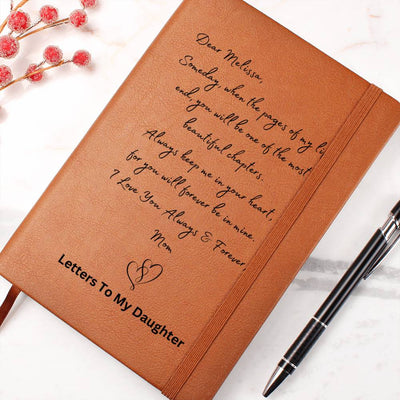 Dear Melissa,
Someday, when the pages of my li
end, you will be one of the most
beautiful chapters.
Always keep me in your heart,
for you will forever be in mine.
I Love You Always & Forever,
Mom
Letters To My Daughter